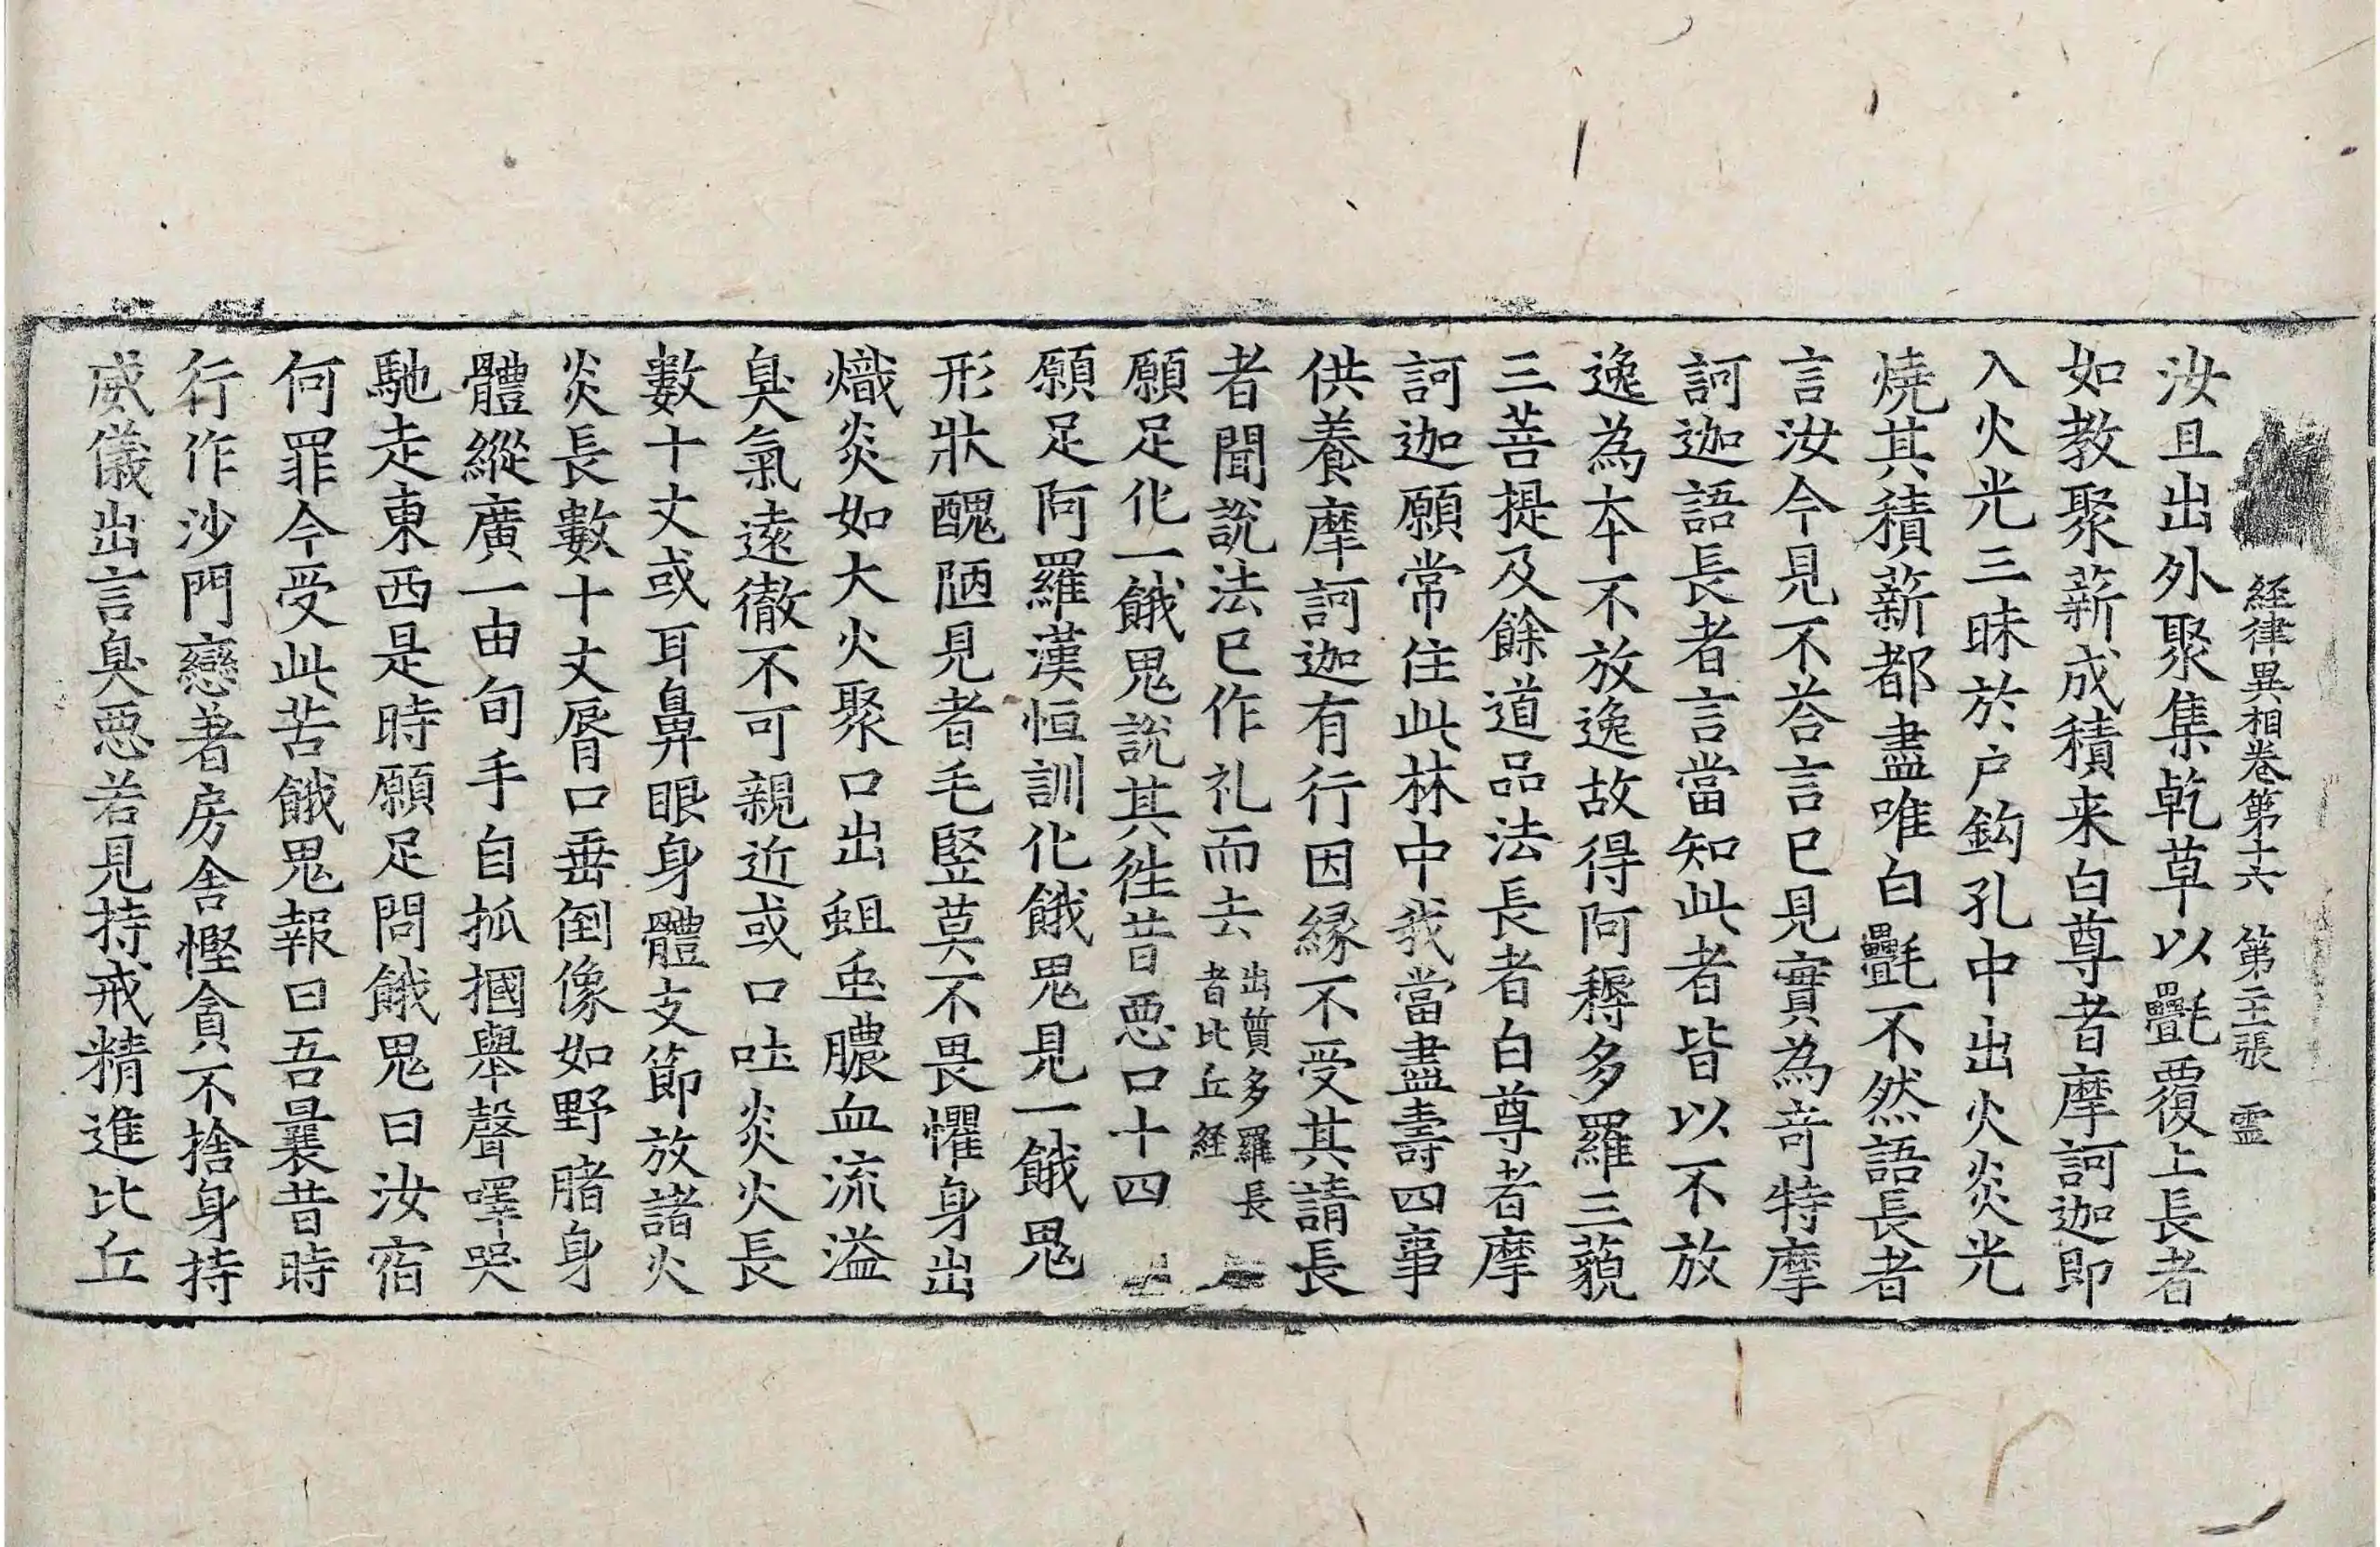 経律異相卷第十六 第二十張 霊
汝且出外聚集乾草以㲲覆上長者
如教聚薪成積来白尊者摩訶迦即
入火光三昧於户鈎孔中出火炎光
燒其積薪都盡唯白㲲不然語長者
言汝今見不荅言已見實為奇特摩
訶迦語長者言當知此者皆以不放
逸為本不放逸故得阿耨多羅三藐
三菩提及餘道品法長者白尊者摩
訶迦願常住此林中我當盡壽四事
供養摩訶迦有行因緣不受其請長
者聞說法已作礼而去出質多羅長者比丘経
願足化一餓鬼說其往昔惡口十四
願足阿羅漢恒訓化餓鬼見一餓鬼
形狀醜陋見者毛竪莫不畏懼身出
熾炎如大火聚口出蛆虫膿血流溢
臭氣遠徹不可親近或口吐炎火長
數十丈或耳鼻眼身體支節放諸火
炎長數十丈脣口垂倒像如野豬身
體縱廣一由旬手自抓摑舉聲嘷哭
馳走東西是時願足問餓鬼曰汝宿
何罪今受此苦餓鬼報曰吾曩昔時
行作沙門戀著房舍慳貪不捨身持
威儀出言臭惡若見持戒精進比丘